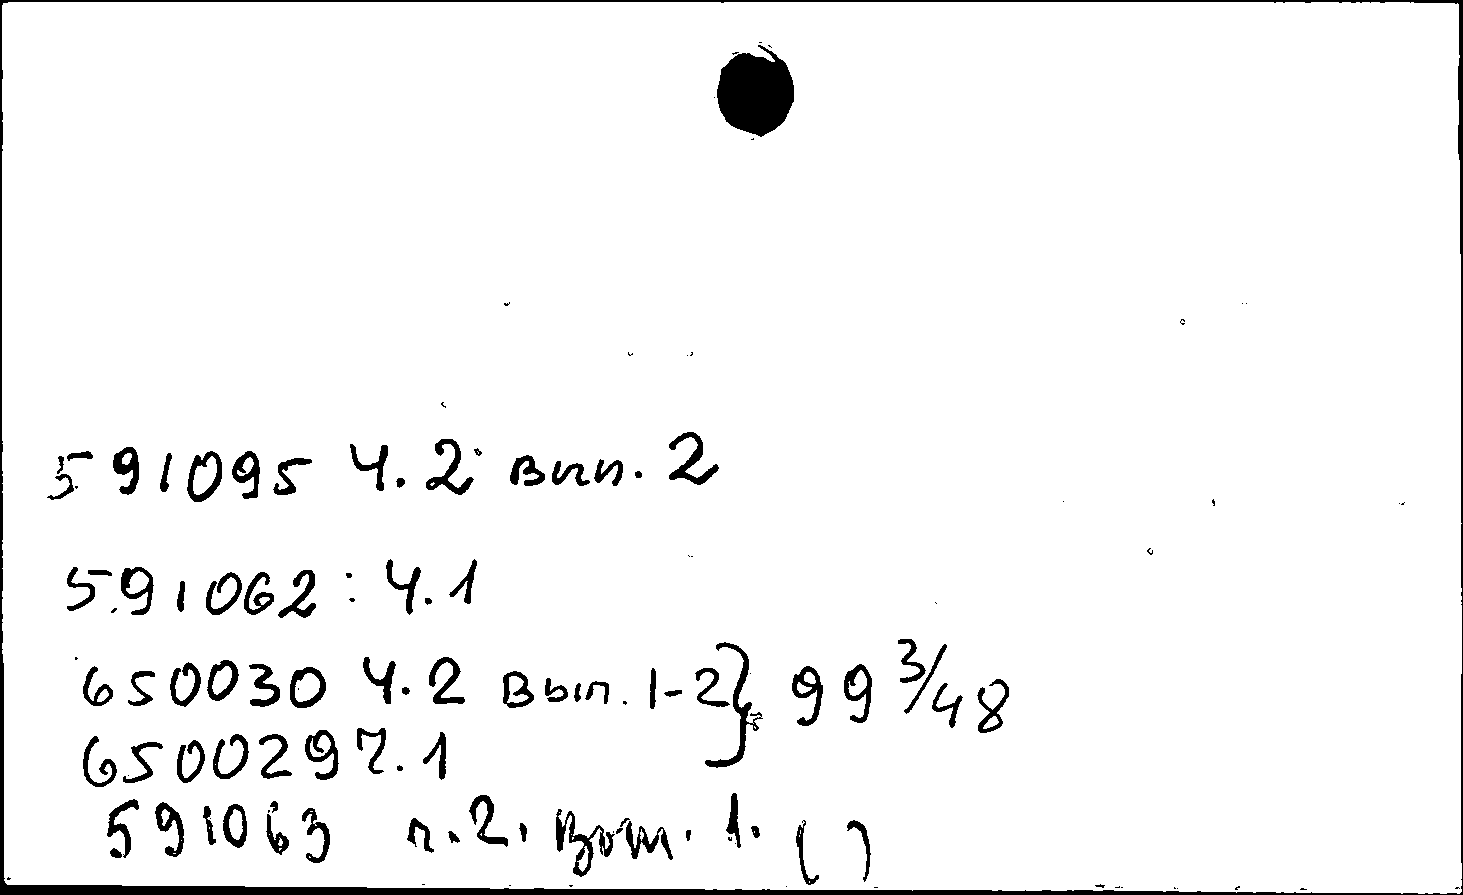 591095 Ч.2 вып. 2
591062 : Ч.1
650030 Ч.2 Вып. 1-2 } 99 3/48
650029 Ч.1
591063 ч.2. Вып. 1. ( )